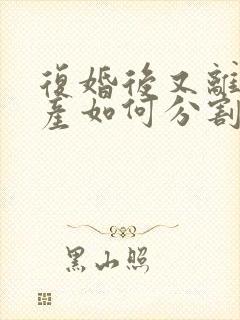 復婚後又離
産如何分割
黑山照